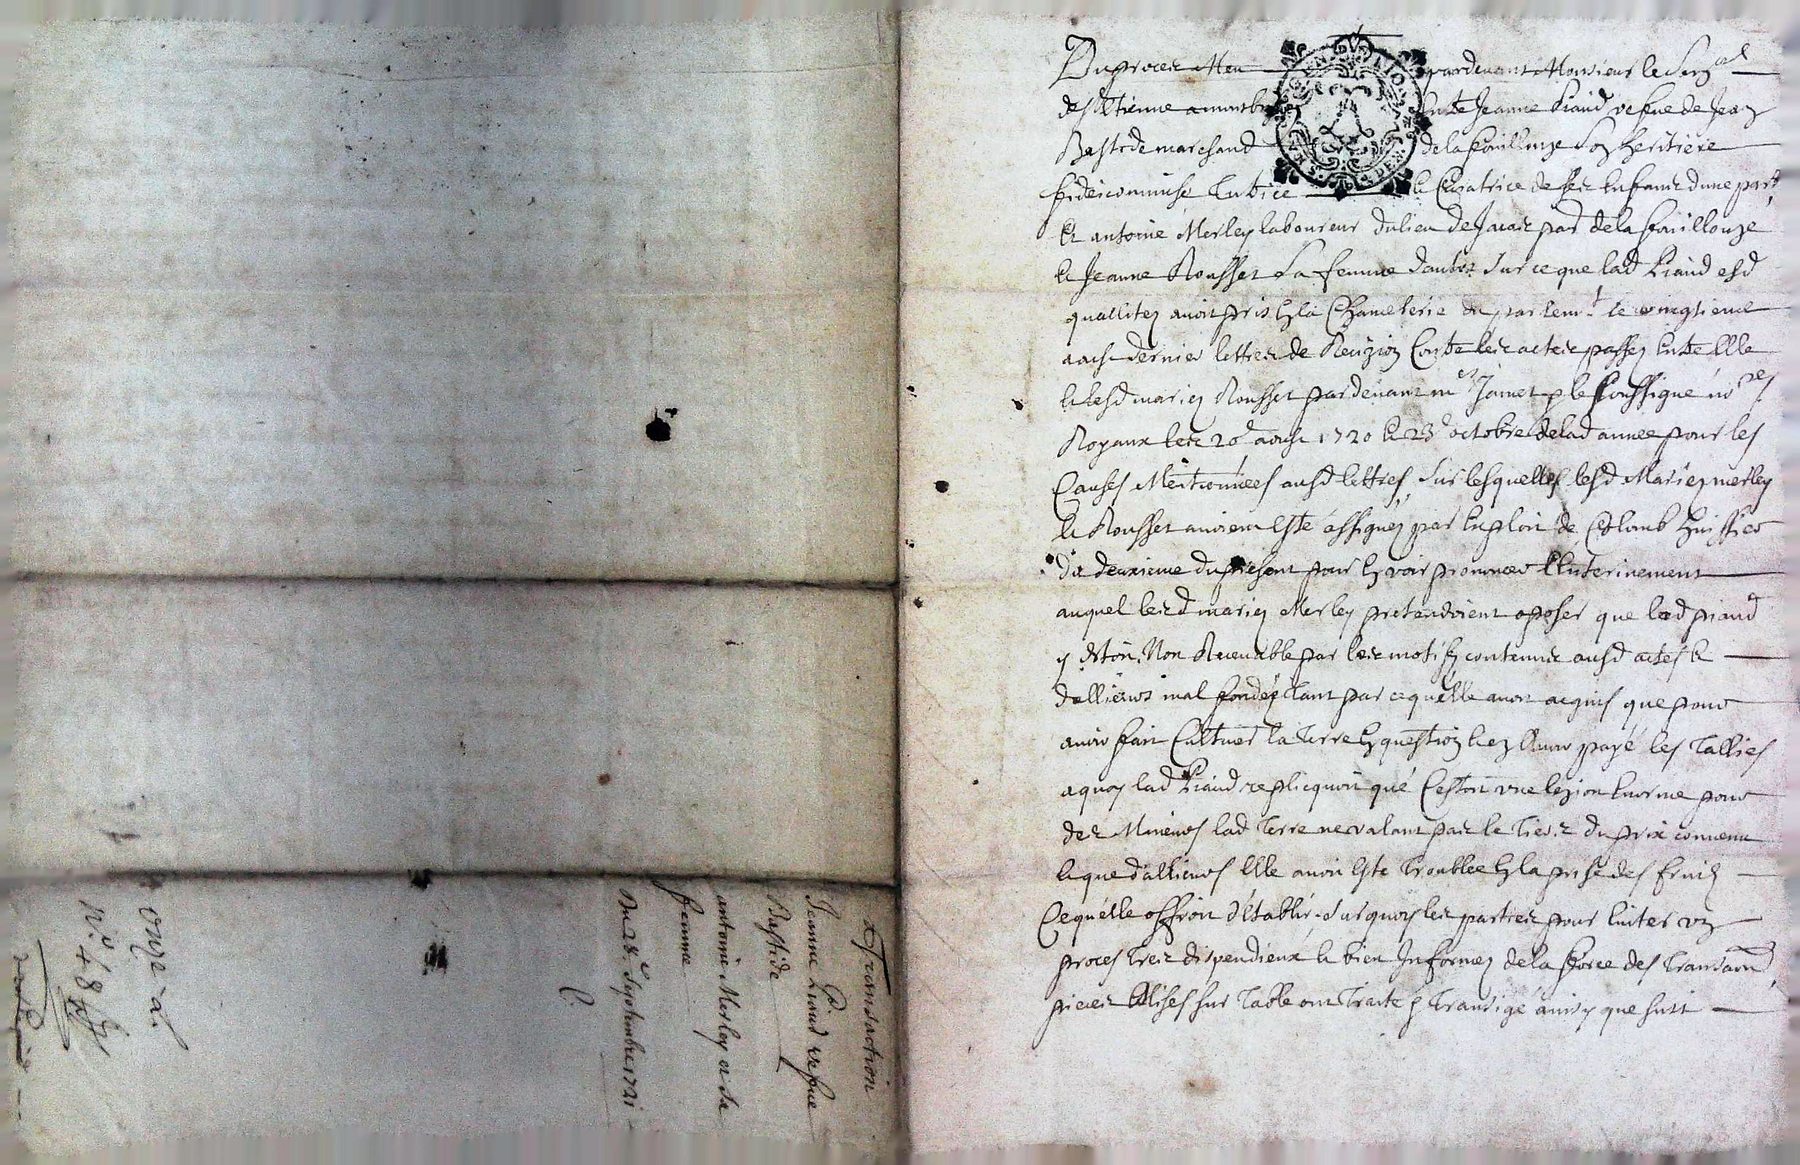 Du proces Meu pardevant Monsieur le Seneal
de St Etienne a mont Entre Jeanne Liaud vefve de Jean
Bastide marchand de la fouillouze son heritiere
fideicommise Tutrice & Curatrice de ses Enfans dune part
Et antoine Merley laboureur du lieu de par de la fouillouze
& Jeanne Rousset sa femme dautre sur ce que lad Liaud esd
quallitez avoit pris En la Chancelerie du parlemt le vingtieme
aoust dernier lettres de Recizion Contre les actes passez Entre Elle
& lesd mariez Rousset pardevant mes Jamet & le soussigne nores
Royaux les 20e aoust 1720 & 23e octobre de lad annee pour les
Causes Mentionnees ausd lettres, sur lesquelles lesd Mariez merley
& Rousset avoient Esté assignez par Exploit de Colomb huissier
du deuxieme du present pour En voir prononcer L'Enterinement
auquel lesd mariez Merley pretendoient oposer que lad Liaud
y étoit Non Recevable par les motifs contenus ausd actes &
d'allieurs mal fondée Tant par ce quélle avoit acquis que pour
avoir fait Caltuer la Terre En question & en avoir payé les Tallies
a quoy lad Liaud replicquoit que Cestoit vne lezion Enorme pour
des Mineurs lad Terre ne valant pas le Tiers du prix convenu
& que d'allieurs Elle avoit Este Troublee En la prise des fruits
Ce quélle offroit d'établir. Sur quoy les parties pour Eviter vn
proces tres dispendieux & bien Informez de la force des Transaons
pieces Mises sur Table ont Traité & Transigé ainsy que suit
Transaction
Jeanne Liaud vefve
Bastide
antoine Merley et sa
femme
Du 28e Septembre 1721
C.
onze
No. 48